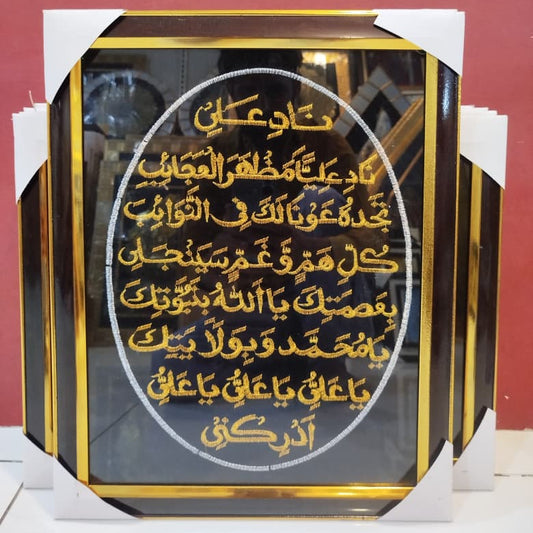 نَادِ عَلِيْ
نَادِ عَلِيًّا مَظْهَرَ الْعَجَائِبِ
تَجِدْهُ عَوْنَالَكَ فِى النَّوَائِبِ
كُلِّ هَمٍّ وَّغَمٍّ سَيَنْجَلِىْ
بِعَصَمَتِكَ يَا اَللّٰهُ بِنُبُوَّتِكَ
يَا مُحَمَّدُ وَبِوِلَايَتِكَ
يَا عَلِىُّ يَا عَلِىُّ يَا عَلِىُّ
اَدْرِكْنِىْ